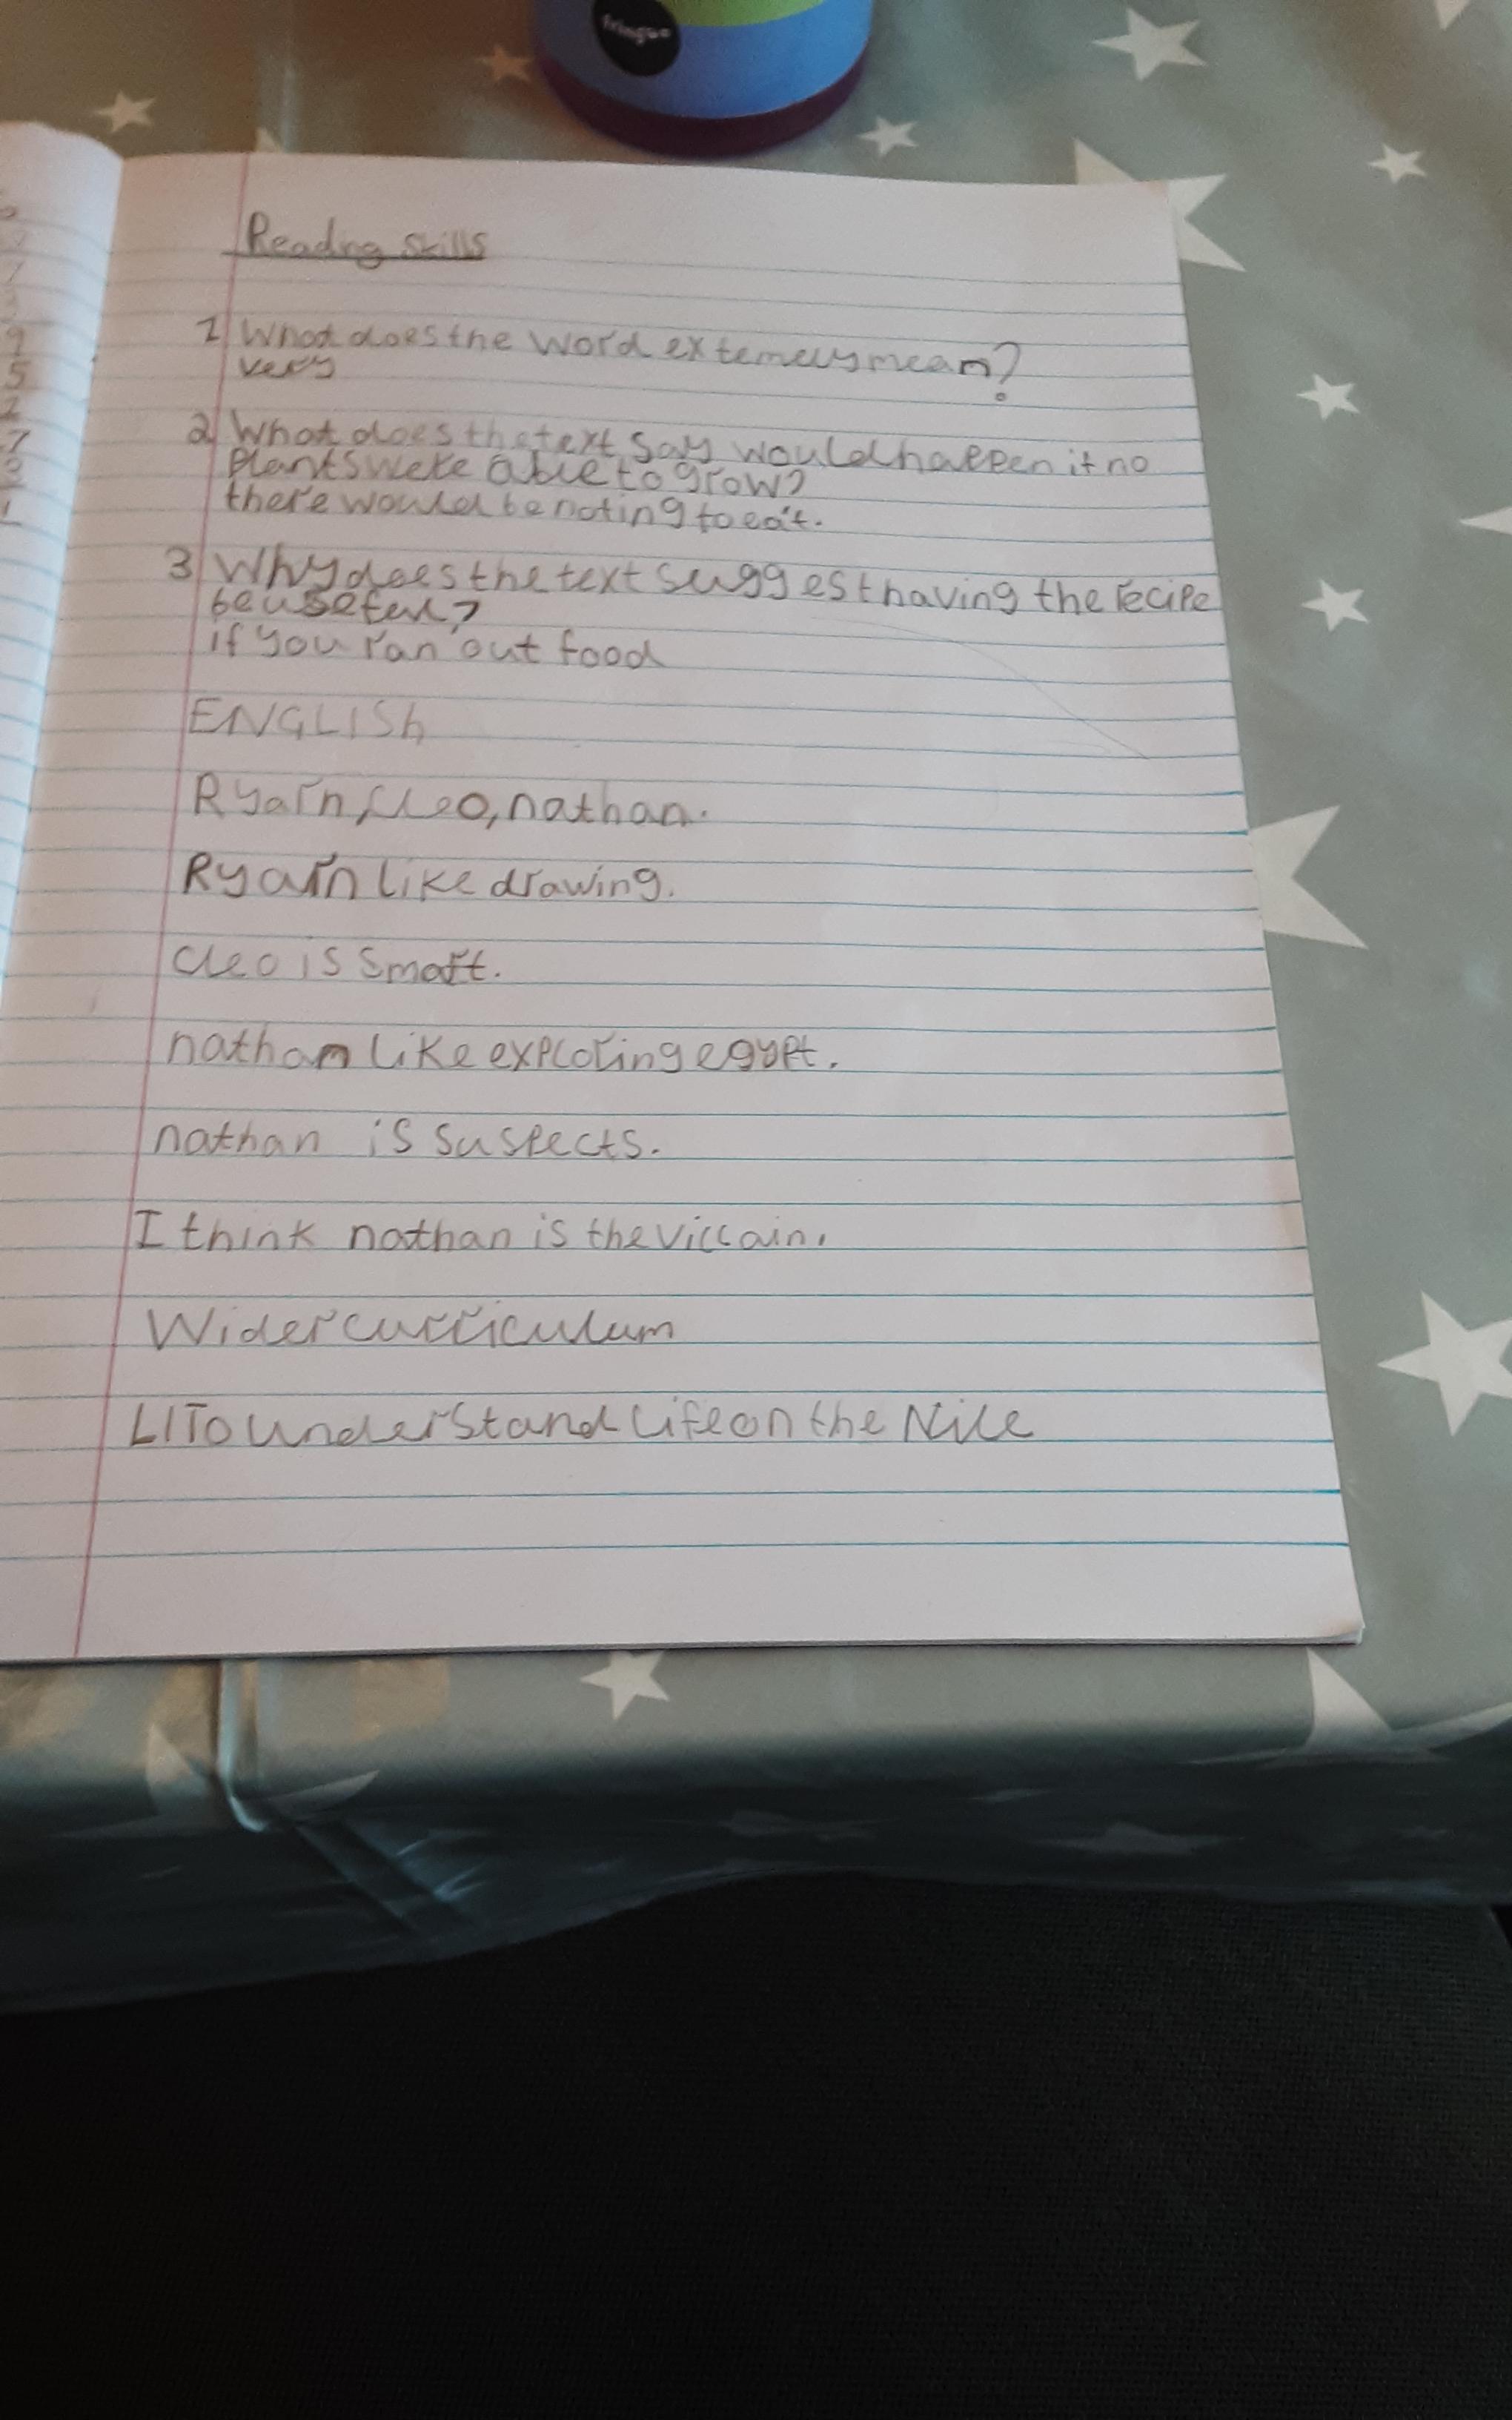 fringoo
Reading Skills
1 What does the word extemely mean?
very
2 What does the text say would happen if no
plants were able to grow?
there would be noting to eat.
3 Why does the text suggest having the recipe
be useful?
if you ran out food
ENGLISh
Ryarn, cleo, nathan.
Ryarn like drawing.
cleo is smart.
nathan like exploring egypt.
nathan is suspects.
I think nathan is the villain.
Wider curriculum
LI To understand life on the Nile